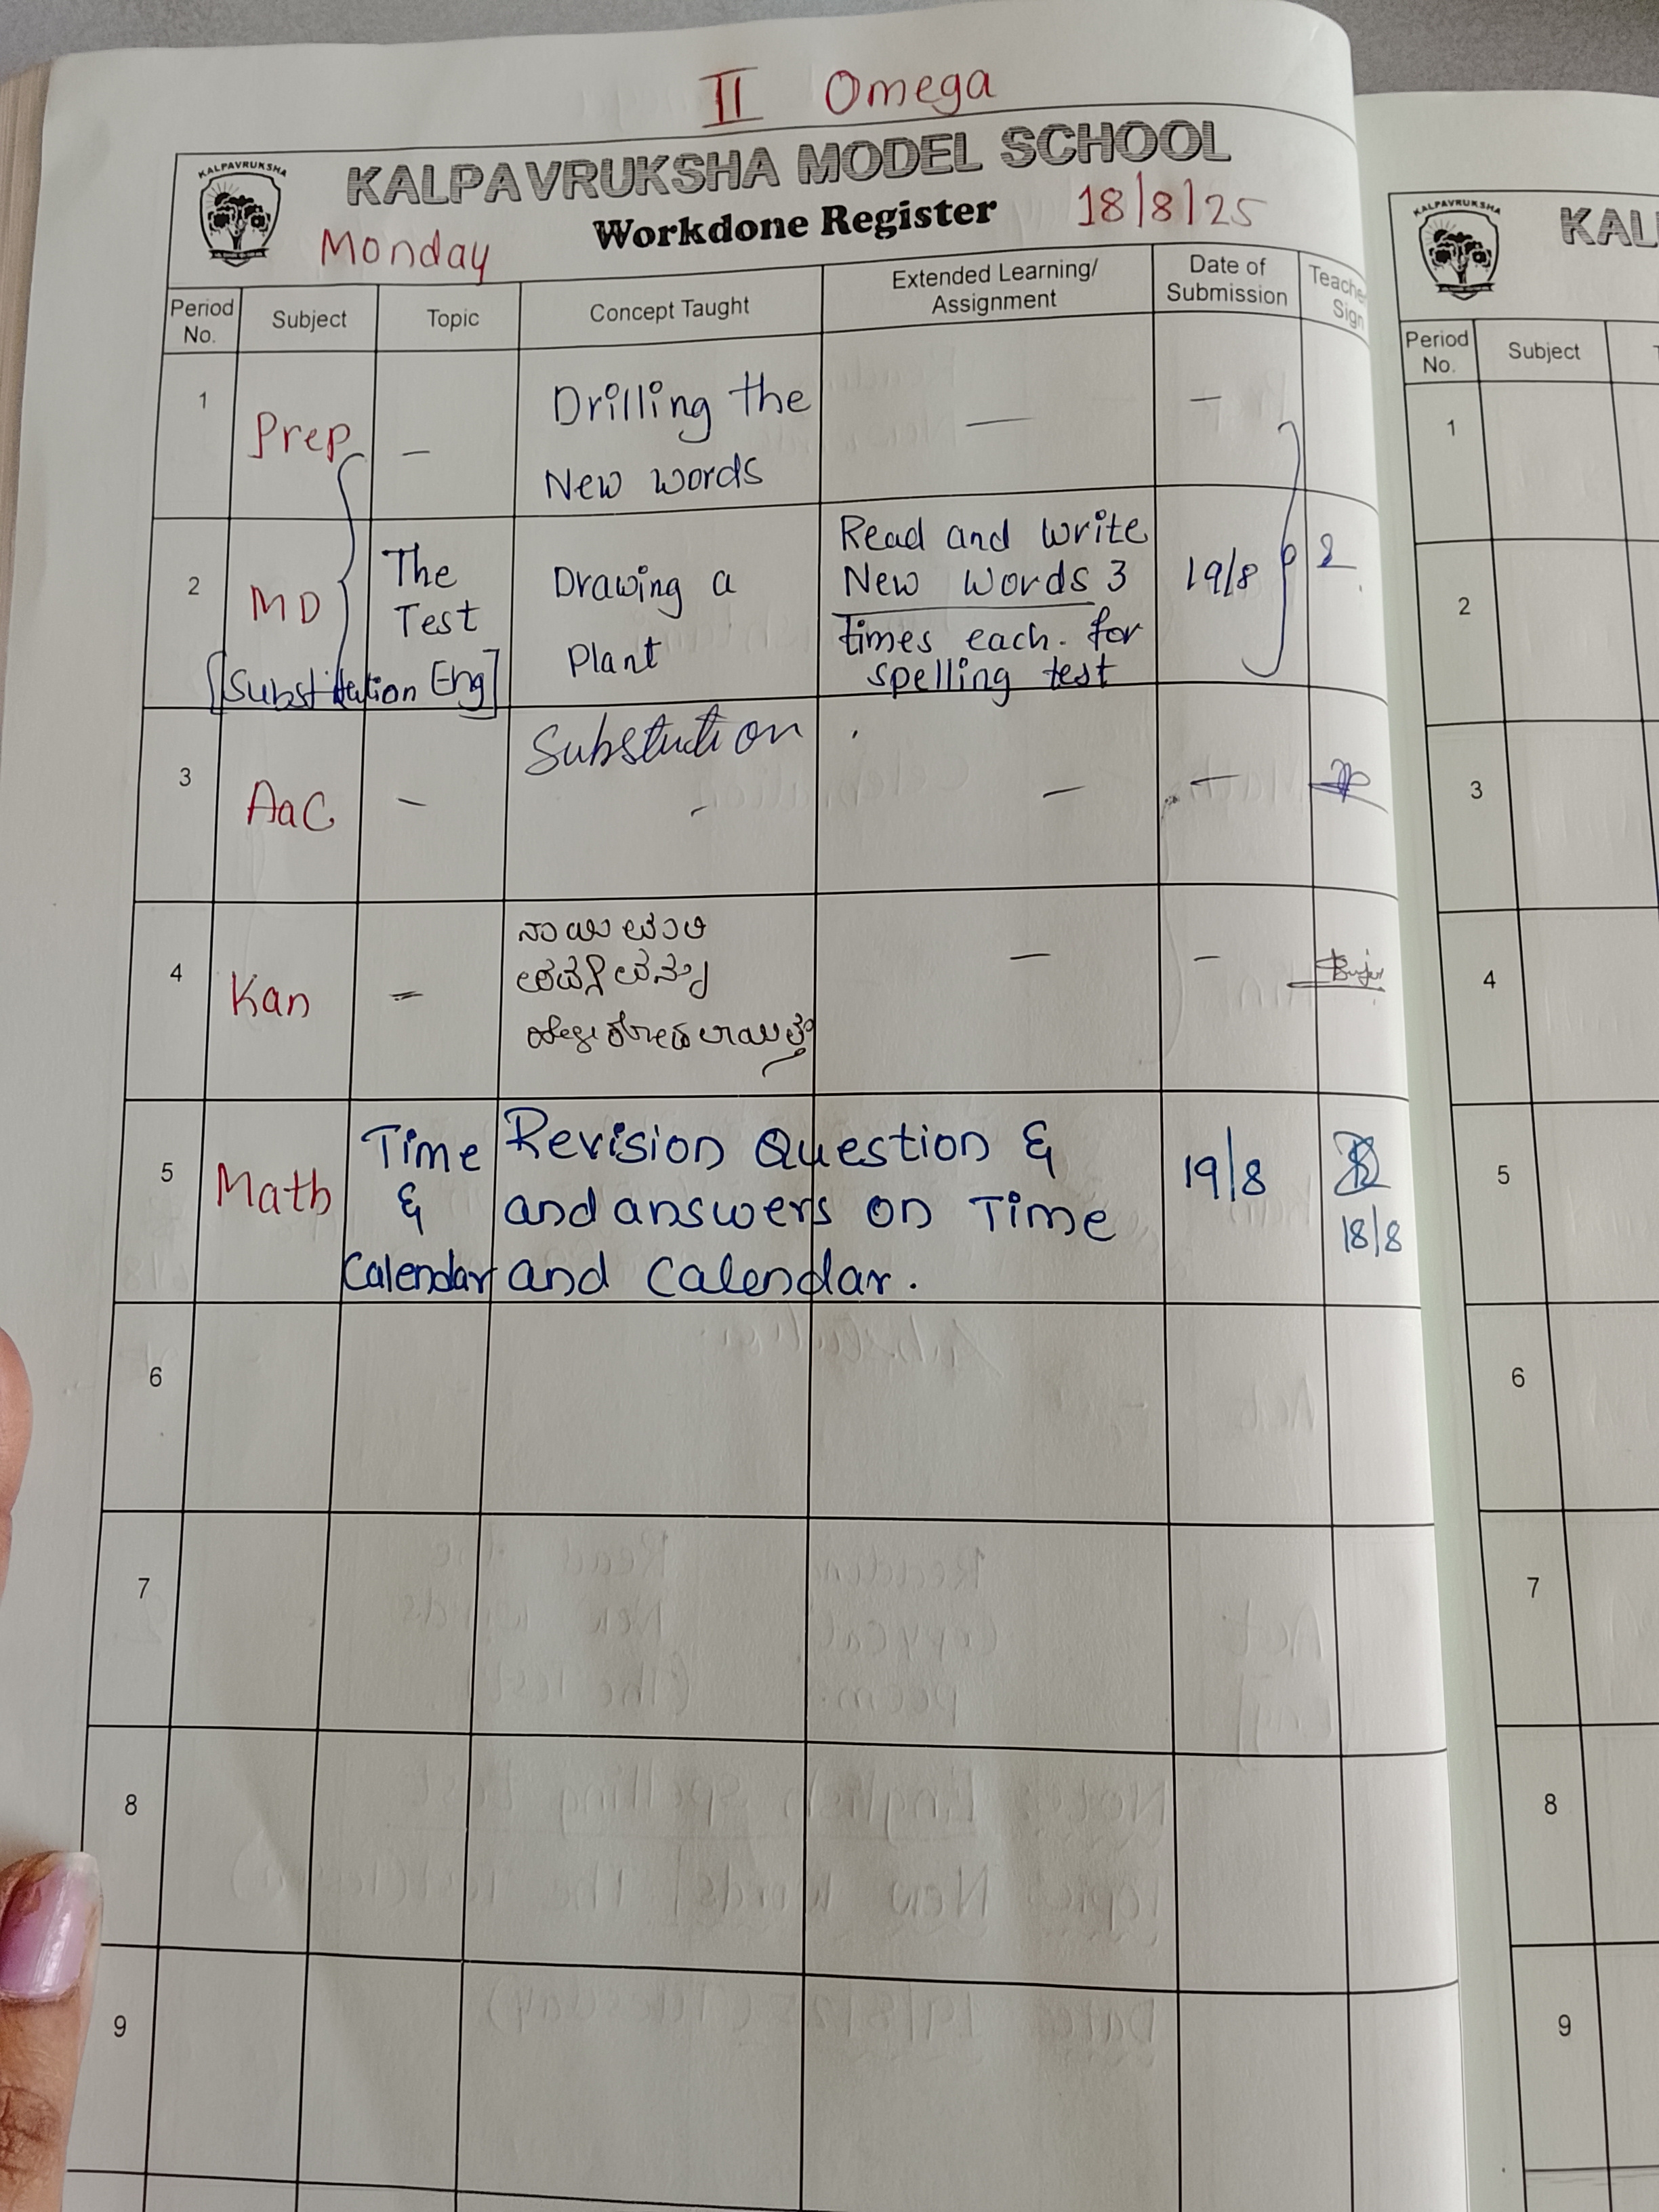 II Omega
KALPAVRUKSHA
KALPAVRUKSHA MODEL SCHOOL
Monday
Workdone Register
18/8/25
Period No.
Subject
Topic
Concept Taught
Extended Learning/ Assignment
Date of Submission
Sign
1
Prep
-
Drilling the
New words
—
-
2
MD
[Substitution Eng]
The
Test
Drawing a
Plant
Read and write
New Words 3
times each. for
spelling test
19/8
3
AaC
-
Substution
-
-
-
4
Kan
=
-
-
5
Math
Time
&
Calendar
Revision Question &
and answers on Time
and Calendar.
19/8
18/8
6
7
8
9
KALPAVRUKSHA
KAL
Period No.
Subject
1
2
3
4
5
6
7
8
9